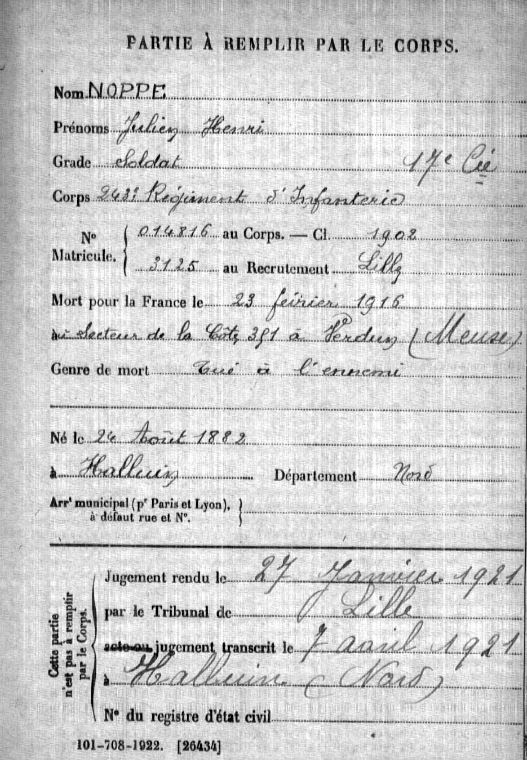 PARTIE À REMPLIR PAR LE CORPS.
Nom NOPPE
Prénoms Julien Henri
Grade Soldat 17e Cie
Corps 243e Régiment d'Infanterie
No Matricule. 014816 au Corps. — Cl. 1902
3125 au Recrutement Lille
Mort pour la France le 23 février 1916
au Secteur de la Côte 351 à Verdun (Meuse)
Genre de mort Tué à l'ennemi
Né le 24 Août 1882
à Halluin Département Nord
Arrt municipal (pr Paris et Lyon),
à défaut rue et No.
Cette partie n'est pas à remplir par le Corps.
Jugement rendu le 27 Janvier 1921
par le Tribunal de Lille
acte ou jugement transcrit le 7 avril 1921
à Halluin (Nord)
No du registre d'état civil
101-708-1922. [26434]